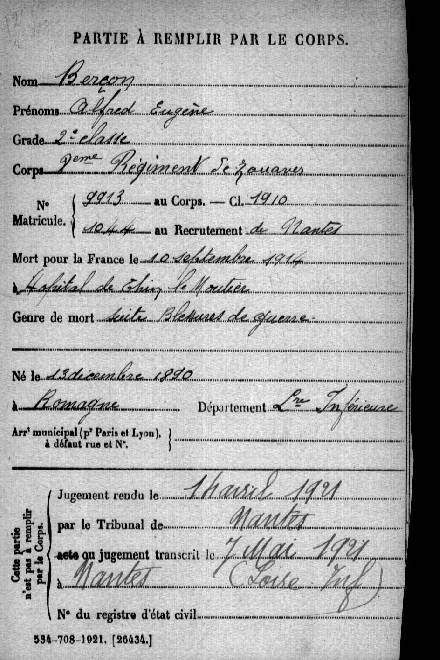 PARTIE À REMPLIR PAR LE CORPS.
Nom Berçon
Prénoms Alfred Eugène
Grade 2e classe
Corps Régiment de Zouaves
N° Matricule. 9913 au Corps. — Cl. 1910
1044 au Recrutement de Nantes
Mort pour la France le 10 septembre 1914
à Hôpital de le Moutier
Genre de mort suite Blessures de guerre
Né le 13 décembre 1890
à Romagne Département Lre Inférieure
Arrt municipal (pr Paris et Lyon),
à défaut rue et N°.
Cette partie n'est pas à remplir par le Corps.
Jugement rendu le 11 avril 1921
par le Tribunal de Nantes
acte ou jugement transcrit le 7 Mai 1921
à Nantes (Loire Inf)
N° du registre d'état civil
534-708-1921. [26434.]